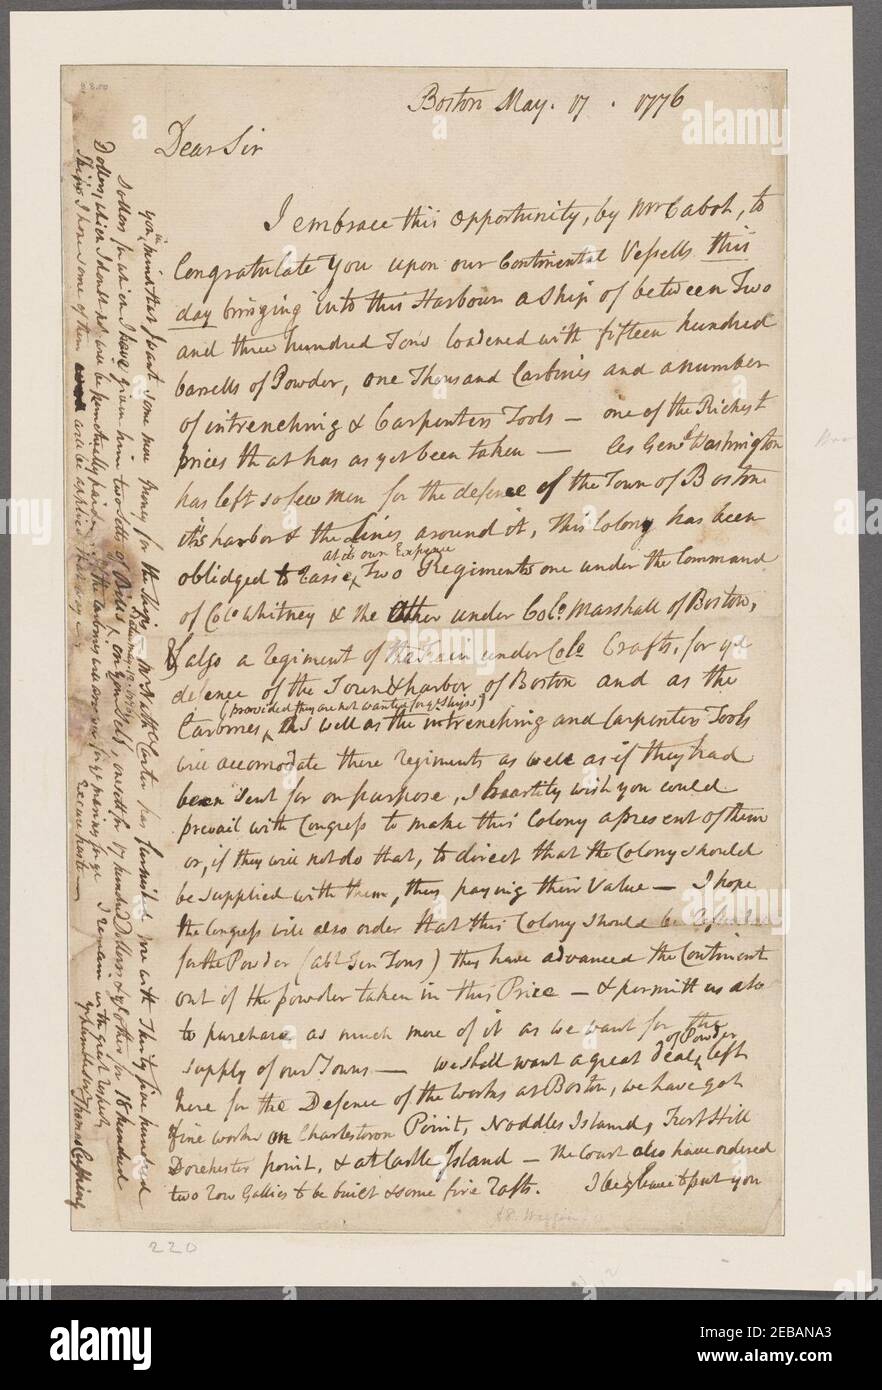 Boston May. 17. 1776
Dear Sir
I embrace this opportunity, by Mr Cabot, to
Congratulate You upon our Continental Vessells this
day bringing into this Harbour a ship of between Two
and three hundred Tons loadened with fifteen hundred
barrells of Powder, one Thousand Carbines and a number
of intrenching & Carpenters Tools — one of the Richest
prices that has as yet been taken — As Genl Washington
has left so few men for the defence of the Town of Boston
its harbor & the Lines around it, this Colony has been
at its own Expence
oblidged to rasie Two Regiments one under the Command
of Colo Whitney & the Other under Colo. Marshall of Boston,
& also a regiment of the train under Colo Crafts, for ye
defence of the Town & harbor of Boston and as the
(provided they are not wanted for ye Ships)
Carbines, as well as the intrenching and Carpenters Tools
will accomodate these regiments as well as if they had
been sent for on purpose, I heartily wish you could
prevail with Congress to make this Colony a present of them
or, if they will not do that, to direct that the Colony should
be supplied with them, they paying their Value — I hope
the Congress will also order that this Colony should be
for the Powder (abt Ten Tons) they have advanced the Continent
out of the powder taken in this Price — & permitt us also
to purchase as much more of it as we want for the
supply of our Towns — we shall want a great deal left
of Powder
here for the Defence of the Works at Boston, we have got
fine works on Charlestown Point, Noddles Island, Fort Hill
Dorchester point, & at Castle Island — the Court also have ordered
two row Gallies to be built & some fire rafts. I beg leave to put you
in
you mind that I want some more money for the Ships — Mr Nathl Carter has furnished me with Thirty five hundred
Dollors for which I have given him two setts of Bills, on you self, one sett for 17 hundred Dollors & ye other for 18 hundred
Dollors, which I doubt not will be punctually paid — the carbines we are now for ye marines for ye
Ships, I hope some of them will be applied that way
Excuse haste —
I remain with great respect
yr humble Sr Thomas Cushing
220
alamy
Image ID: 2EBANA3
www.alamy.com